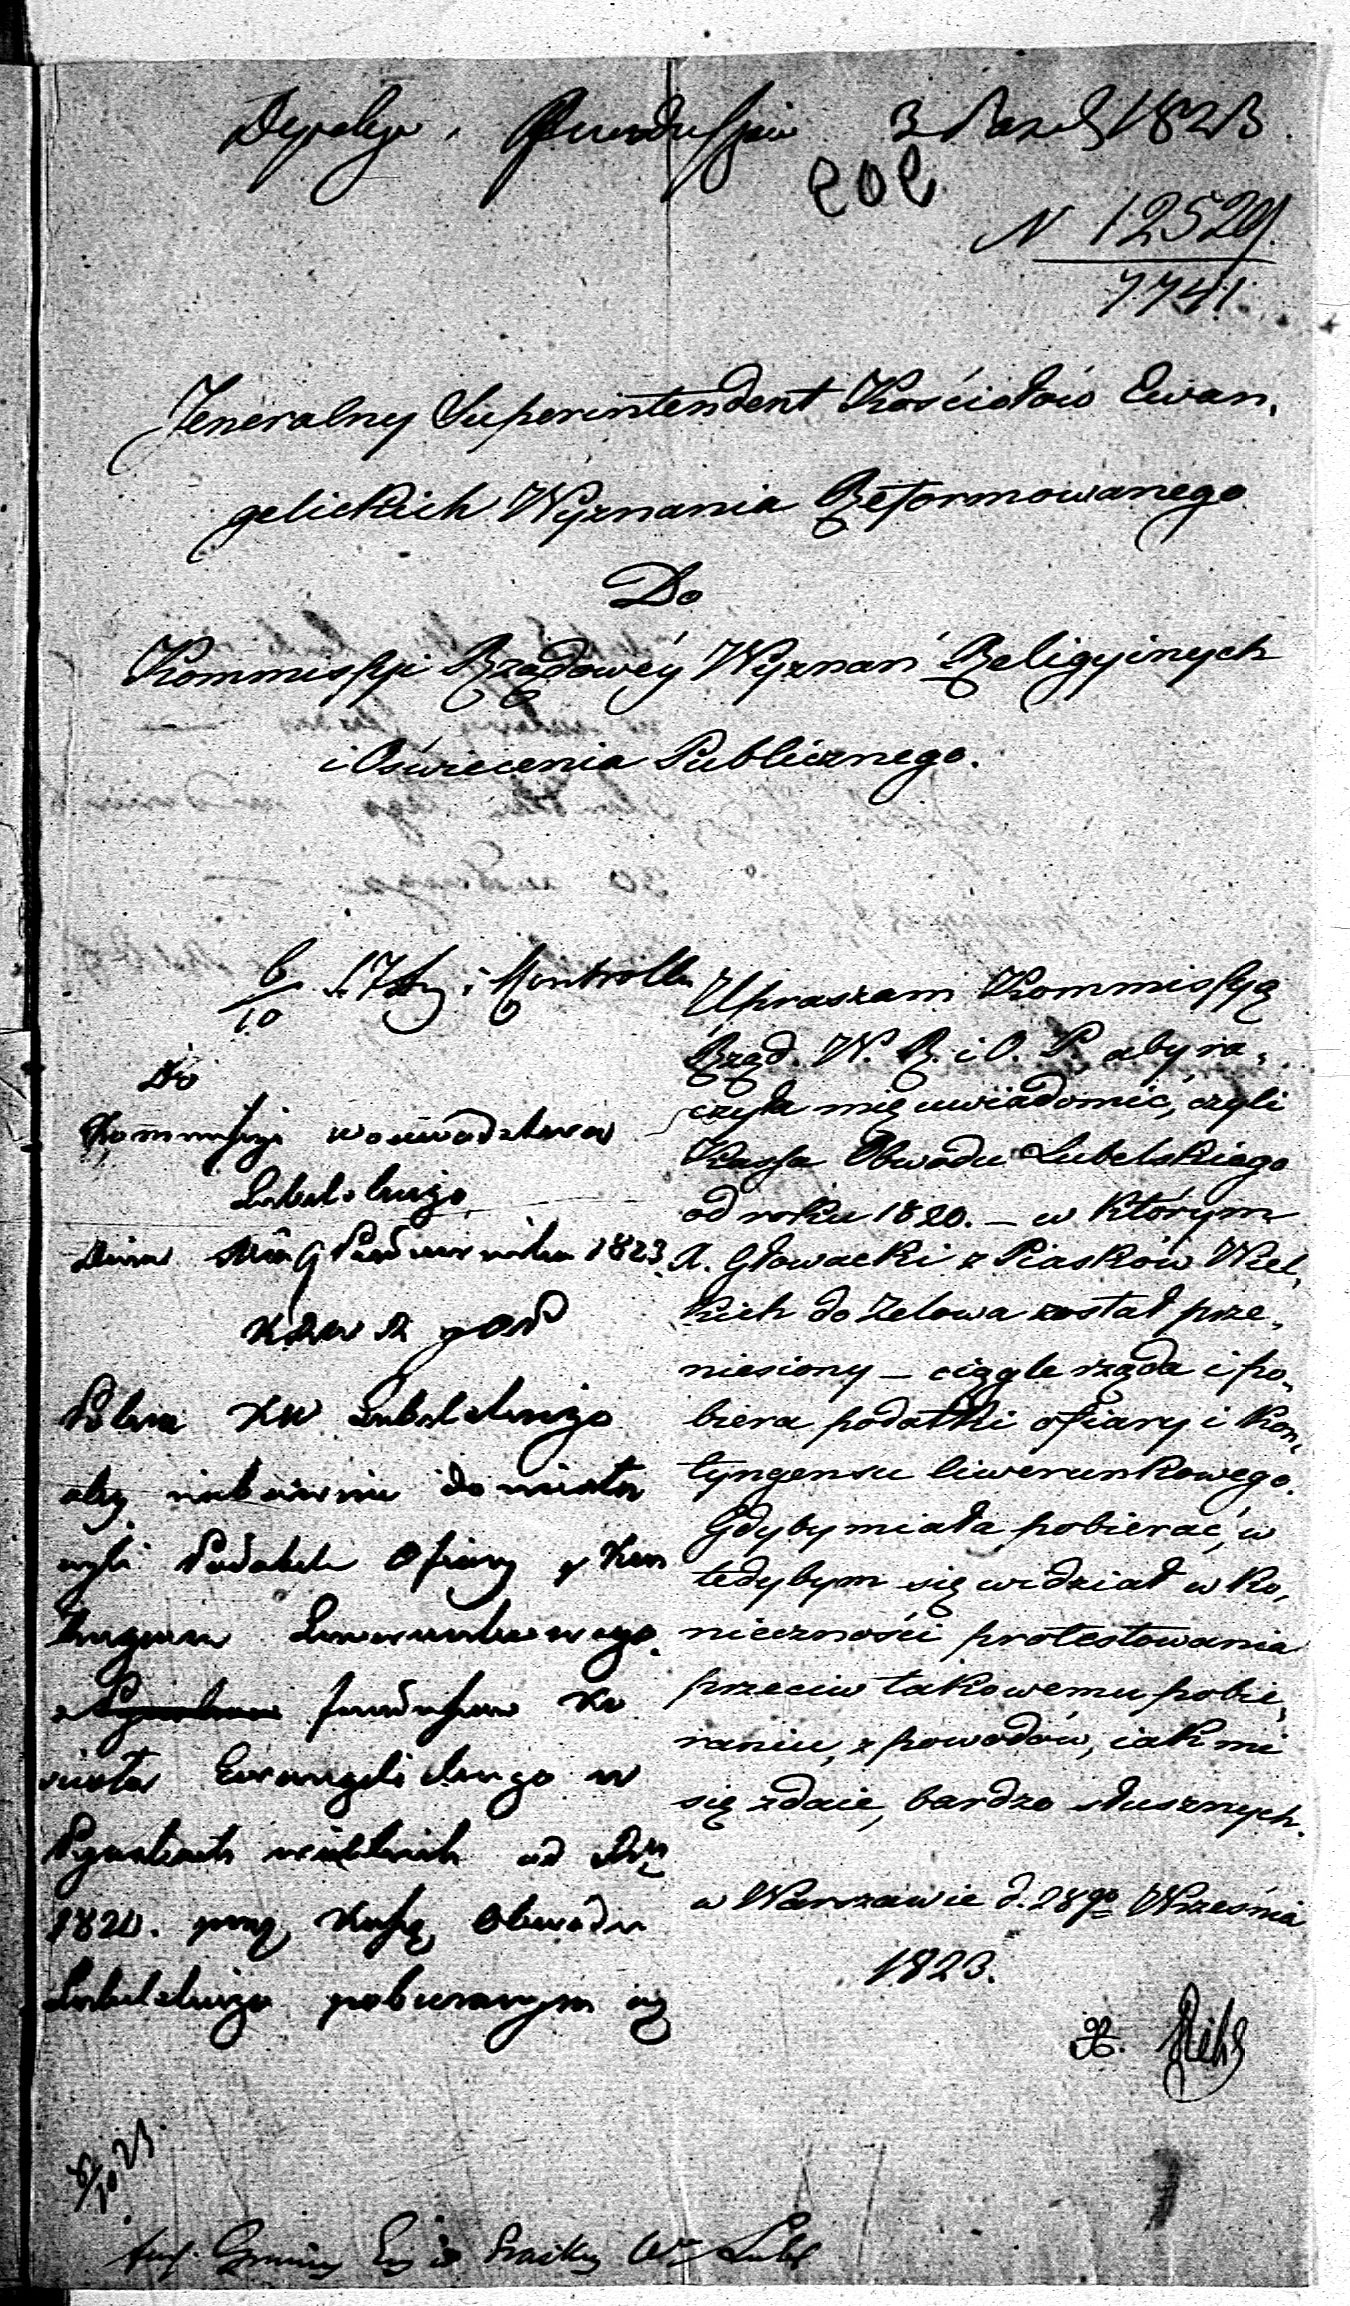 3 1823
202
N 12529
7741
Jeneralny Superintendent Kościołów Ewan,
gelickich Wyznania Reformowanego
Do
Kommissyi Rządowéy Wyznań Religyinych
i Oświecenia Publicznego.
6/10 i Kontrolla
Do
Kommissyi Woiewództwa
Lubelskiego
Października 1823
Poleca KW Lubelskiego
aby
czyli Podatek Ofiary y Kon
tyngensu Liwerunkowego
z funduszów Ko
ścioła Ewangelickiego w
Piaskach wielkich od
1820. przez Kassę Obwodu
Lubelskiego pobieranym
Upraszam Kommissyą
Rząd. W. R. i O. P. aby ra,
czyła mię uwiadomić, czyli
Kassa Obwodu Lubelskiego
od roku 1820. – w którym
X. Głowacki z Piasków Wiel,
kich do Zelowa został prze,
niesiony – ciągle rząda i po,
biera podatki ofiary i kon,
tyngensu liwerunkowego.
Gdyby miała pobierać, w
tedybym się widział w ko,
nieczności protestowania
przeciw takowemu pobie,
raniu, z powodów, iak mi
się zdaie, bardzo słusznych.
w Warszawie d. 28go Września
1823.
X. Diehl
Gminy Ew Piaski Wo Lubel